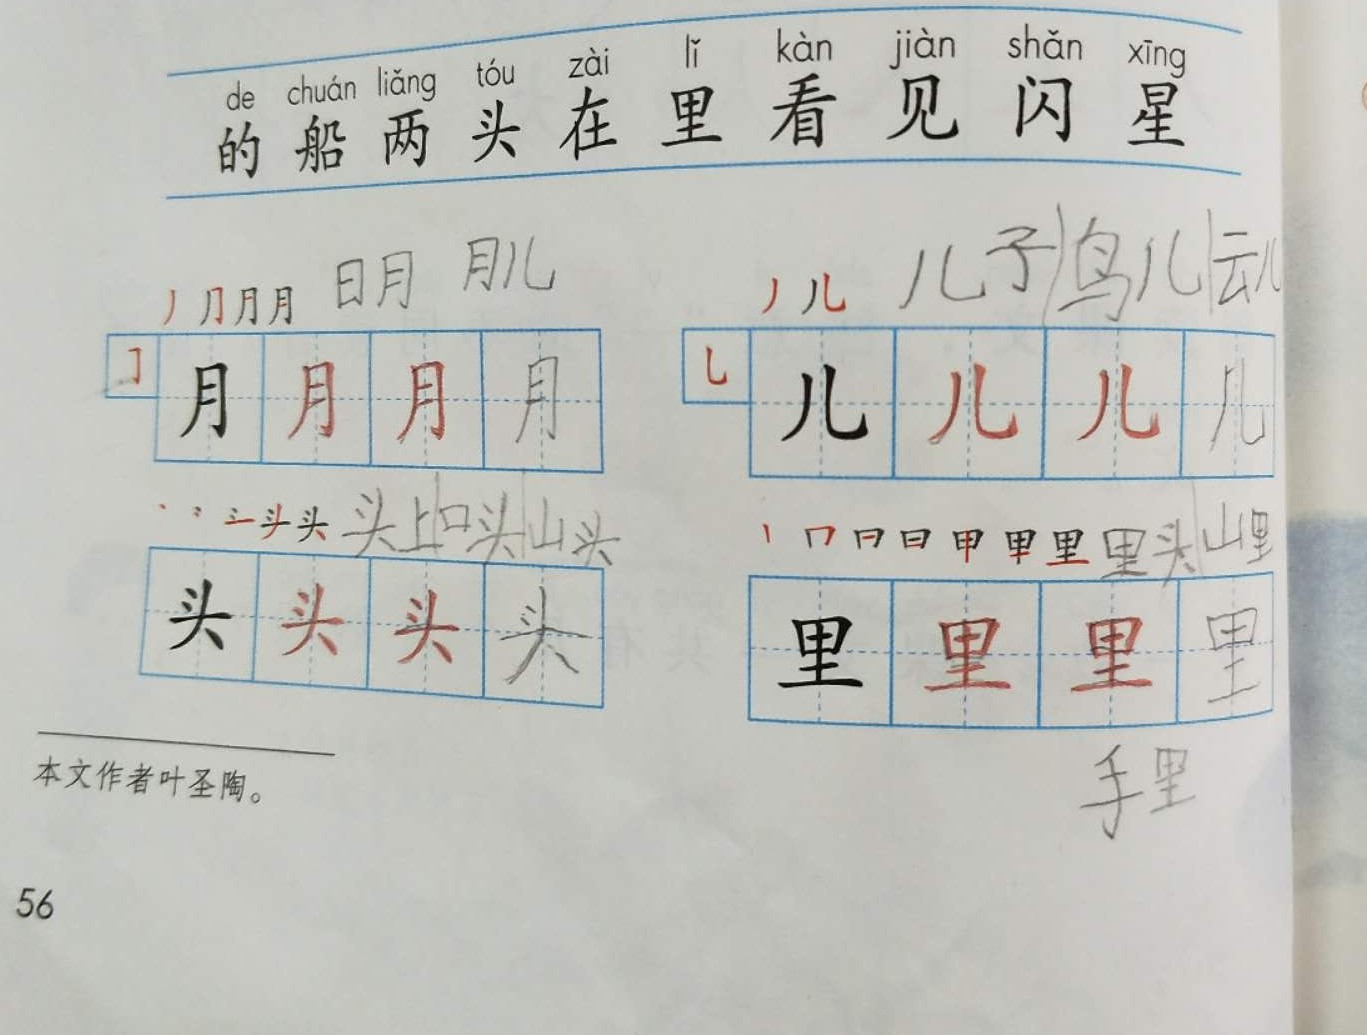 de chuán liǎng tóu zài lǐ kàn jiàn shǎn xīng
的 船 两 头 在 里 看 见 闪 星
日月 月儿
儿子 鸟儿 云儿
丿 ⺆ 月 月
丿 儿
㇆ 月 月 月 月
乚 儿 儿 儿 儿
头上 口头 山头
头 头
里头 山里
丨 冂 日 曰 甲 甲 里
头 头 头 头
里 里 里 里
手里
本文作者叶圣陶。
56